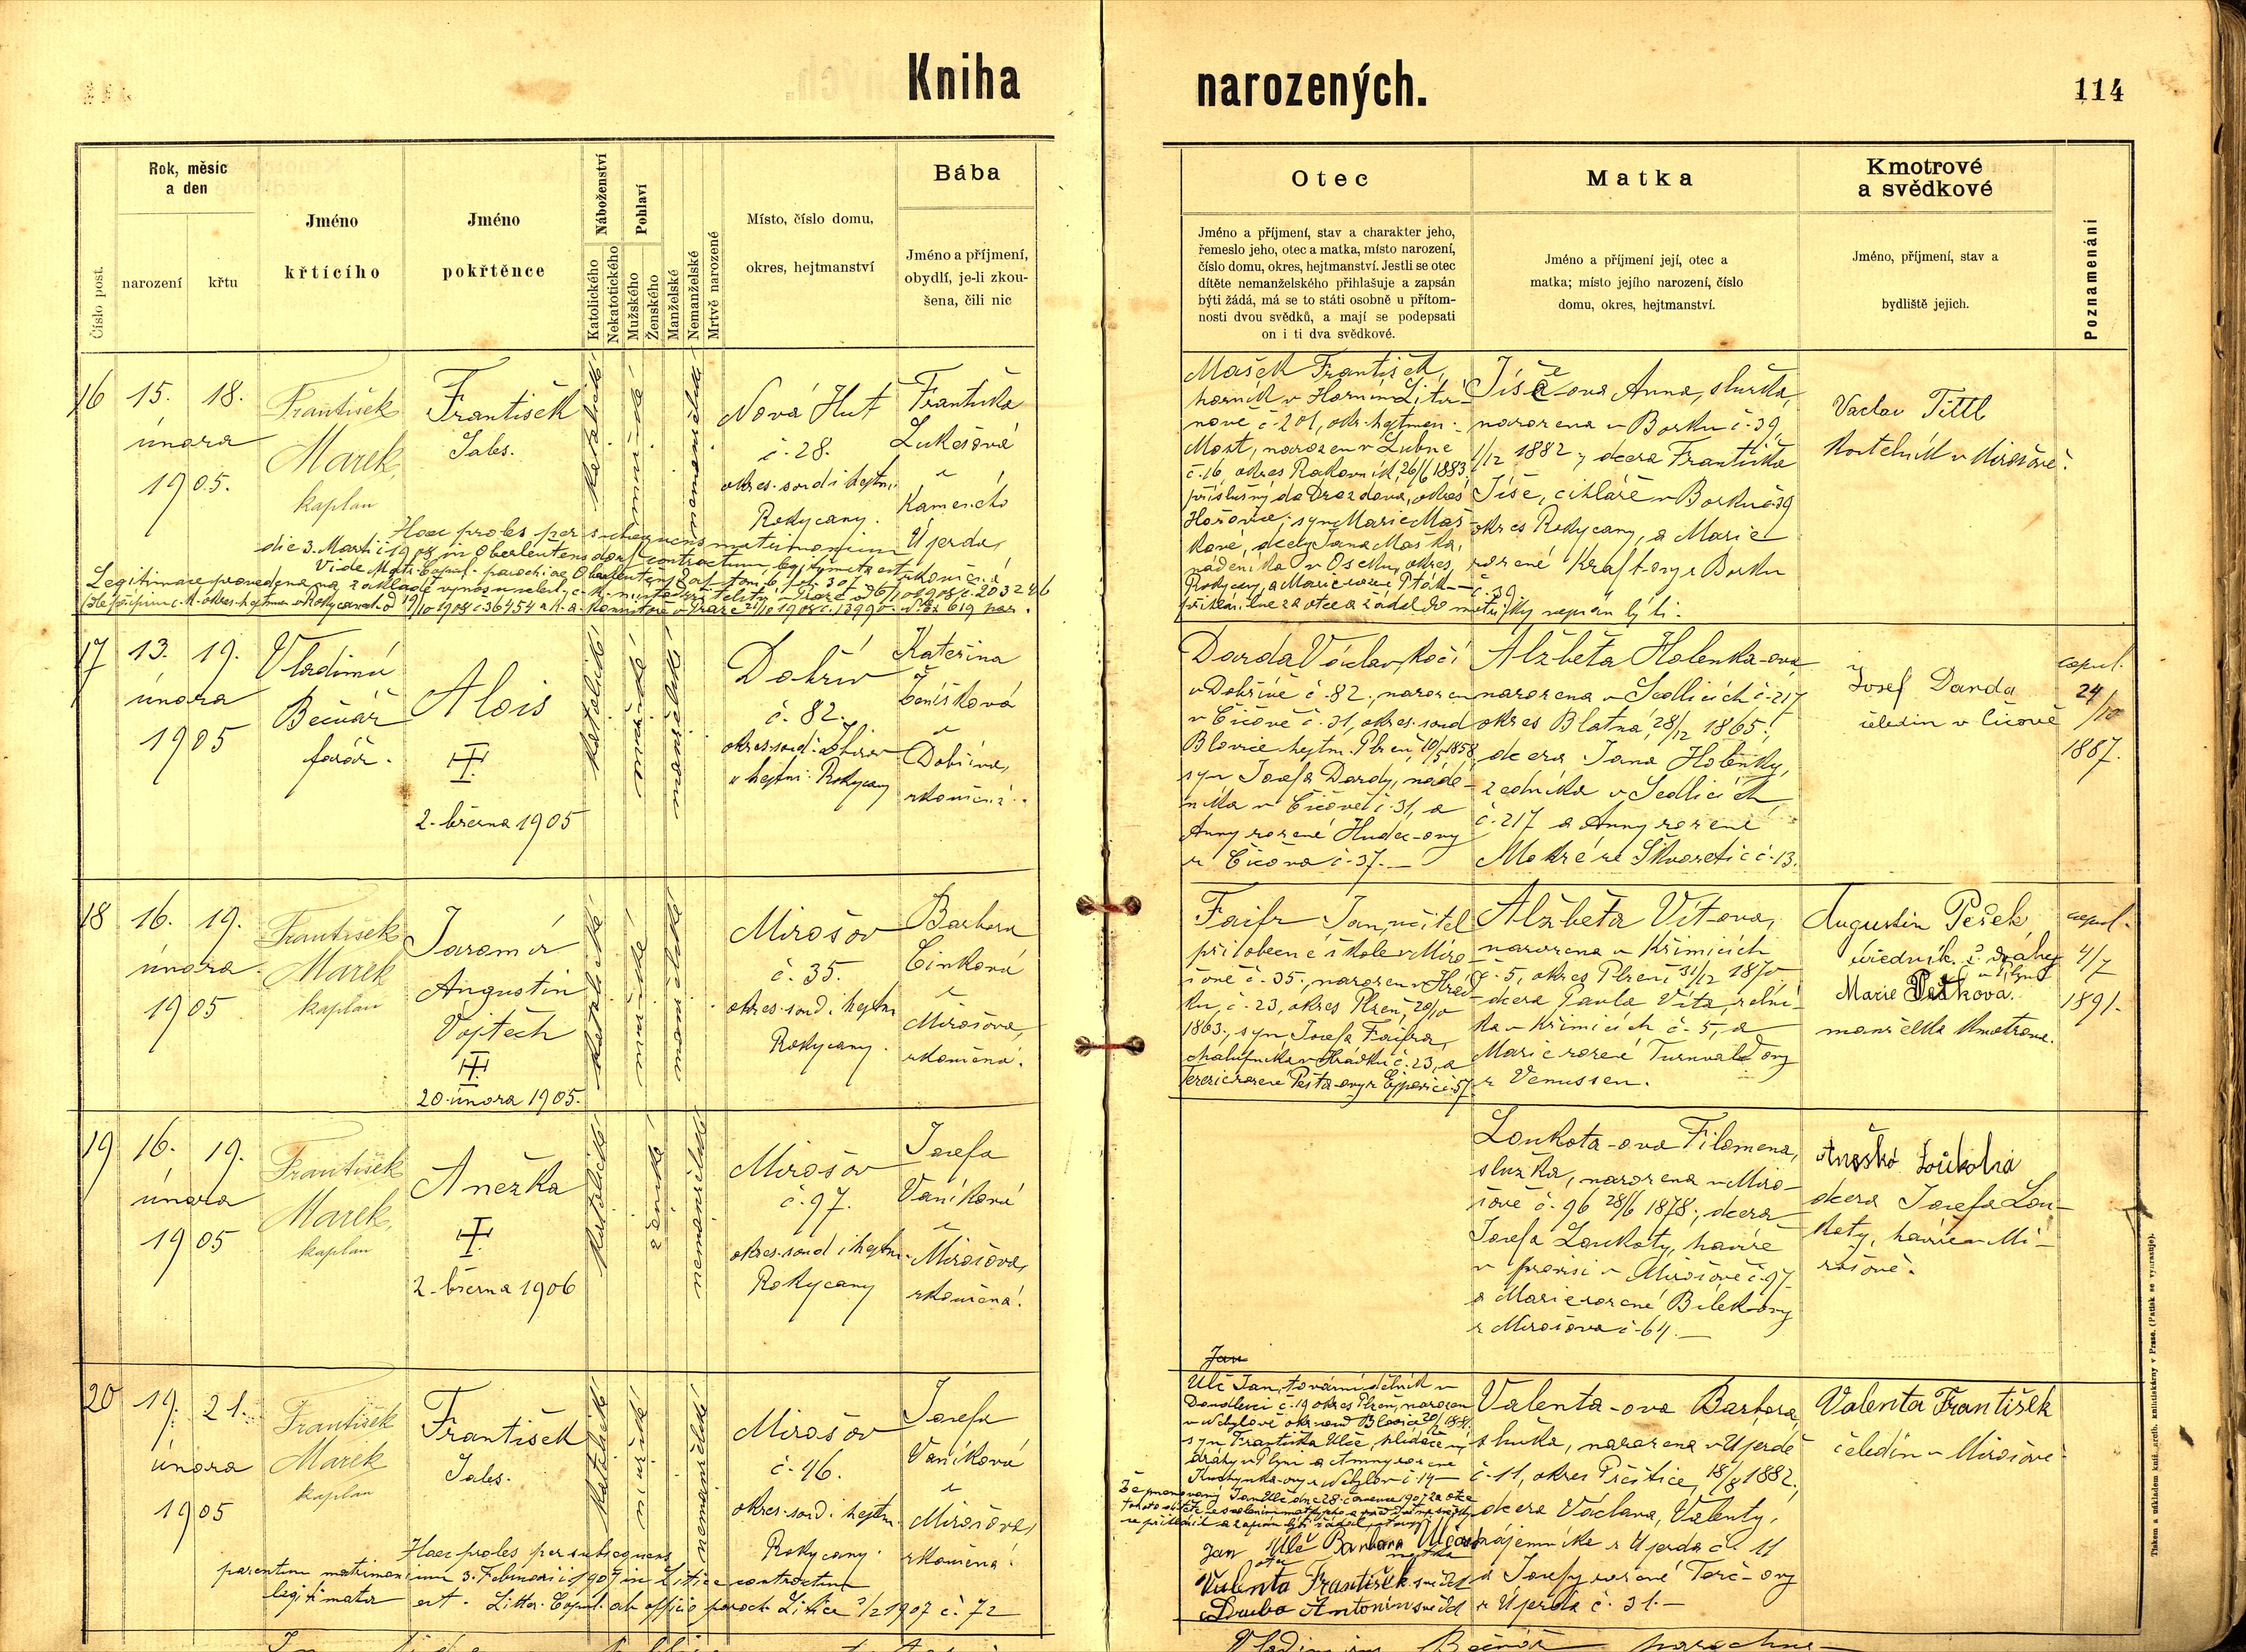 Kniha narozených.
114
Číslo post.
Rok, měsíc
a den
narození
křtu
Jméno
křtícího
Jméno
pokřtěnce
Náboženství
Katolického
Nekatolického
Pohlaví
Mužského
Ženského
Manželské
Nemanželské
Mrtvě narozené
Místo, číslo domu,
okres, hejtmanství
Bába
Jméno a příjmení,
obydlí, je-li zkou-
šena, čili nic
Otec
Jméno a příjmení, stav a charakter jeho,
řemeslo jeho, otec a matka, místo narození,
číslo domu, okres, hejtmanství. Jestli se otec
dítěte nemanželského přihlašuje a zapsán
býti žádá, má se to státi osobně u přítom-
nosti dvou svědků, a mají se podepsati
on i ti dva svědkové.
Matka
Jméno a příjmení její, otec a
matka; místo jejího narození, číslo
domu, okres, hejtmanství.
Kmotrové
a svědkové
Jméno, příjmení, stav a
bydliště jejich.
Poznamenání
16
15. 18.
února
1905.
František
Marek,
kaplan
František
Sales.
katolické
mužské
nemanželské
Nová Huť
č. 28.
okres. soud i hejtm.
Rokycany.
Františka
Lukešová
z
Kameného
Újezda,
zkoušená
Haec proles per subsequens matrimonium
die 3. Martii 1908 in Oberleutensdorf contractum, legitimata est.
Vide Matr. Copul. parochiae Oberleutensdorf tom. 6, fol. 307
Mašek František,
horník v Horním Litví-
nově č. 201, okr. hejtman.
Most, narozen v Lubné
č. 16, okres Rakovník, 26/6 1883,
příslušný do Drozdova, okres
Hořovice; syn Marie Maš-
kové, dcery Jana Maška,
nádeníka v Oseku, okres
Rokycany, a Marie rozené Pták-
Jíše-ova Anna, služka,
narozena v Borku č. 39,
1/12 1882, dcera Františka
Jíše, cihláře v Borku č. 39
okres Rokycany, a Marie
rozené Kraft-ovy z Borku
č. 39.
Václav Tittl
kostelník v Mirošově.
17
13. 19.
února
1905
Vladimír
Bečvář
farář.
Alois
2. března 1905
katolické
mužské
manželské
Dobřív
č. 82.
okres. soud. Zbirov
hejtm. Rokycany
Kateřina
Beníšková
z
Dobříva,
zkoušená.
Darda Václav, kočí
v Dobřívě č. 82., narozen
v Čičově č. 31, okres. soud
Blovice hejtm. Plzeň 10/5 1858,
syn Josefa Dardy, náde-
níka v Čičově č. 31, a
Anny rozené Hudec-ovy
z Čičova č. 37.
Alžběta Holenka-ova
narozena v Sedlicích č. 217
okres Blatná, 28/12 1865;
dcera Jana Holenky,
zedníka v Sedlicích
č. 217 a Anny rozené
Mokré ze Škvořetic č. 13.
Josef Darda
čeledín v Čičově
copul.
24/10
1887.
18
16. 19.
února
1905
František
Marek
kaplan
Jaromír
Augustin
Vojtěch
20. února 1905.
katolické
mužské
manželské
Mirošov
č. 35.
okres. soud i hejtm
Rokycany.
Barbora
Cinková
z
Mirošova,
zkoušená.
Faifr Jan, učitel
při obecné škole v Miro-
šově č. 35, narozen v Hrád-
ku, č. 23, okres Plzeň, 20/10
1863., syn Josefa Faifra,
chalupníka v Hrádku č. 23, a
Terezie rozené Pešta-ovy z Ejpovic č. 57.
Alžběta Vít-ova,
narozena v Křimicích
č. 5, okres Plzeň, 31/12 1870
dcera Pavla Víta, rolní-
ka v Křimicích č. 5, a
Marie rozené Turnvald-ovy
z Venussen.
Augustin Pešek,
úředník. č. dráhy
v Plzni
Marie Pešková.
manželka kmotrova.
copul.
4/7
1891.
19
16. 19.
února
1905
František
Marek,
kaplan
Anežka
2. března 1906
katolické
ženské
nemanželské
Mirošov
č. 97.
okres. soud i hejtm.
Rokycany
Josefa
Vaníková
z
Mirošova,
zkoušená.
Loukota-ova Filomena,
služka, narozena v Miro-
šově č. 96 28/6 1878., dcera
Josefa Loukoty, havíře
v provisi v Mirošově č. 97
a Marie rozené Bílek-ovy
z Mirošova č. 64.
Anežka Loukotová
dcera Josefa Lou-
koty, havíře v Mi-
rošově.
20
19. 21.
února
1905
František
Marek
kaplan
František
Sales.
katolické
mužské
nemanželské
Mirošov
č. 46.
okres. soud i hejtm.
Rokycany.
Josefa
Vaníková
z
Mirošova,
zkoušená.
Haec proles per subsequens
parentum matrimonium 3. Februarii 1907 in Litice contractum
legitimata est. Litter. Copul. ab officio paroch. Litice 3/2 1907 č. 72
Jan
Ulč Jan, tovární dělník v
Doudlevci č. 19 okres Plzeň, narozen
syn Františka Ulče, hlídače
dráhy v Plzni a Anny rozené
Jan Ulč Barbora Ulčová
otec matka
Valenta František svědek
Duba Antonín svědek
Valenta-ova Barbora,
služka, narozena v Újezdě
č. 11, okres Přeštice, 18/8 1882.,
dcera Václava Valenty,
nájemníka z Újezda č. 11
a Josefy rozené Terč-ovy
z Újezda č. 31.
Valenta František
čeledín v Mirošově
Vladimír Bečvář
Tiskem a nákladem kníž. arcib. knihtiskárny v Praze. (Patisk se vyhražuje).